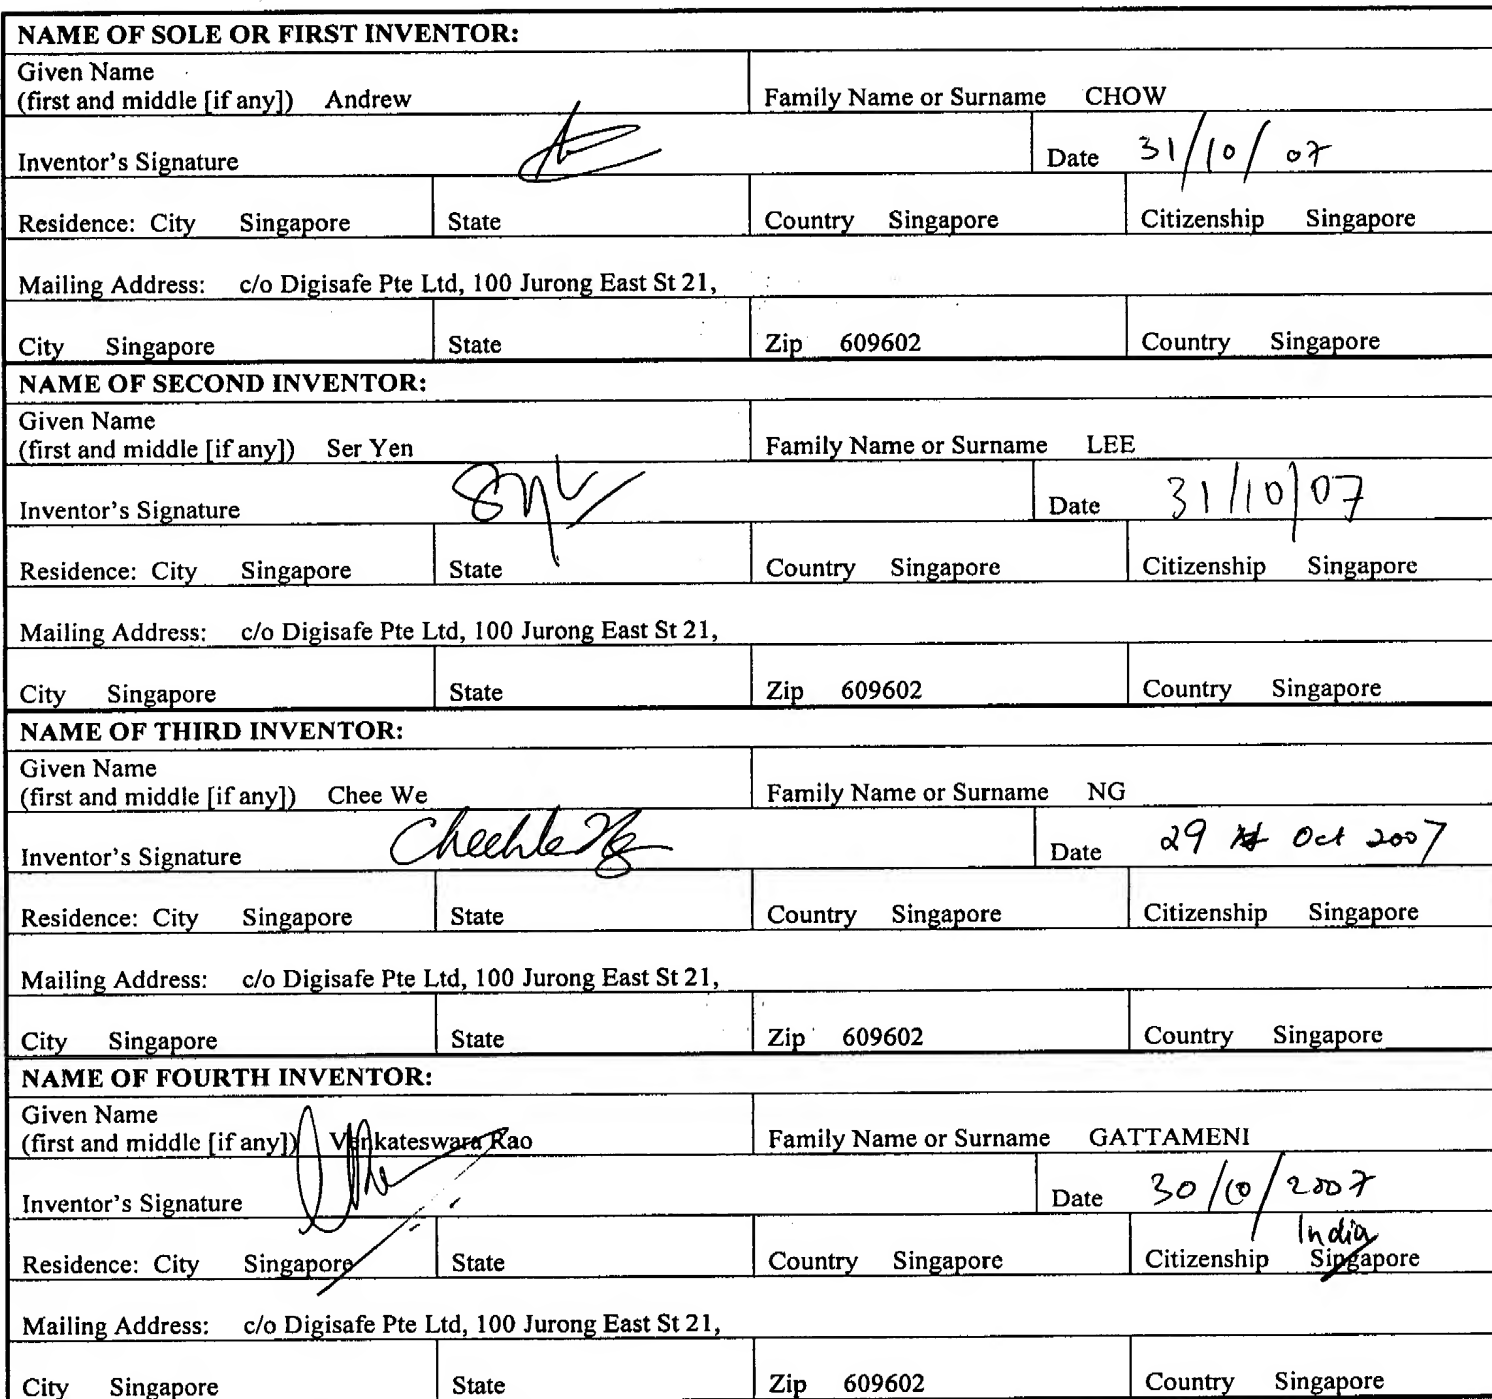 NAME OF SOLE OR FIRST INVENTOR:
Given Name
(first and middle [if any]) Andrew Family Name or Surname CHOW
Inventor's Signature Date 31/10/07
Residence: City Singapore State Country Singapore Citizenship Singapore
Mailing Address: c/o Digisafe Pte Ltd, 100 Jurong East St 21,
City Singapore State Zip 609602 Country Singapore
NAME OF SECOND INVENTOR:
Given Name
(first and middle [if any]) Ser Yen Family Name or Surname LEE
Inventor's Signature Date 31/10/07
Residence: City Singapore State Country Singapore Citizenship Singapore
Mailing Address: c/o Digisafe Pte Ltd, 100 Jurong East St 21,
City Singapore State Zip 609602 Country Singapore
NAME OF THIRD INVENTOR:
Given Name
(first and middle [if any]) Chee We Family Name or Surname NG
Inventor's Signature Date 29 Oct 2007
Residence: City Singapore State Country Singapore Citizenship Singapore
Mailing Address: c/o Digisafe Pte Ltd, 100 Jurong East St 21,
City Singapore State Zip 609602 Country Singapore
NAME OF FOURTH INVENTOR:
Given Name
(first and middle [if any]) Venkateswara Rao Family Name or Surname GATTAMENI
Inventor's Signature Date 30/10/2007
India
Residence: City Singapore State Country Singapore Citizenship Singapore
Mailing Address: c/o Digisafe Pte Ltd, 100 Jurong East St 21,
City Singapore State Zip 609602 Country Singapore